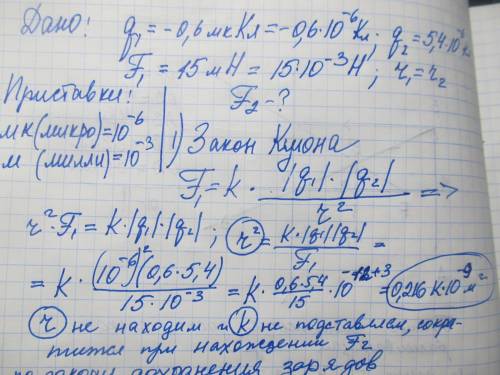 Дано: q₁=-0,6мкКл=-0,6·10⁻⁶Кл; q₂=5,4·10⁻⁶
F₁=15мН=15·10⁻³Н; r₁=r₂
Приставки!
F₂-?
мк(микро)=10⁻⁶
м (милли)=10⁻³
1) Закон Кулона
F₁=k·|q₁|·|q₂|/r² =>
r²·F₁=k·|q₁|·|q₂|; r²=k·|q₁||q₂|/F₁=
=k·(10⁻⁶)²(0,6·5,4)/15·10⁻³=k·0,6·5,4/15·10⁻¹²⁺³=0,216k·10⁻⁹м²
r не находим и k не подставляем, сокра-
тится при нахождении F₂
по закону сохранения зарядов